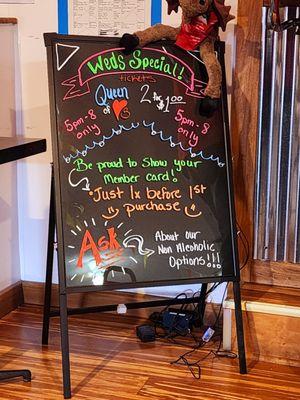 Weds Special!
tickets
Queen of ♥s
2 for $1.00
5pm-8 only
5pm-8 only
Be proud to Show your
Member card!
• Just 1x before 1st
purchase
Ask
About our
Non Alcoholic
Options!!!